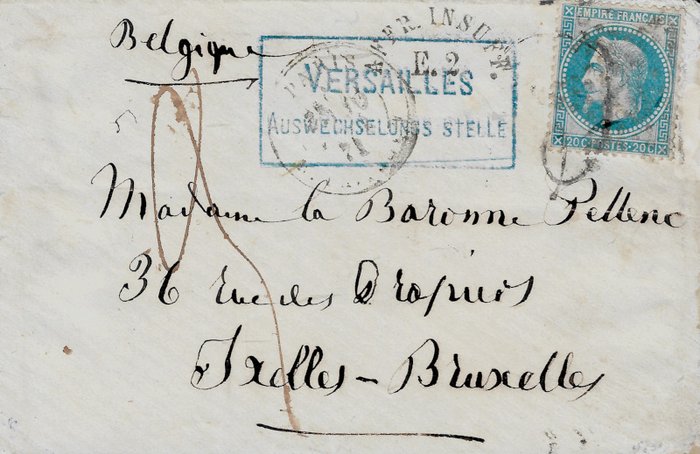 Belgique
AFFR. INSUFF.
E. 2
PARIS
VERSAILLES
AUSWECHSELUNGS STELLE
EMPIRE FRANCAIS
20C POSTES 20C
Madame la Baronne Pellenc
36 rue des Drapiers
Ixelles - Bruxelles